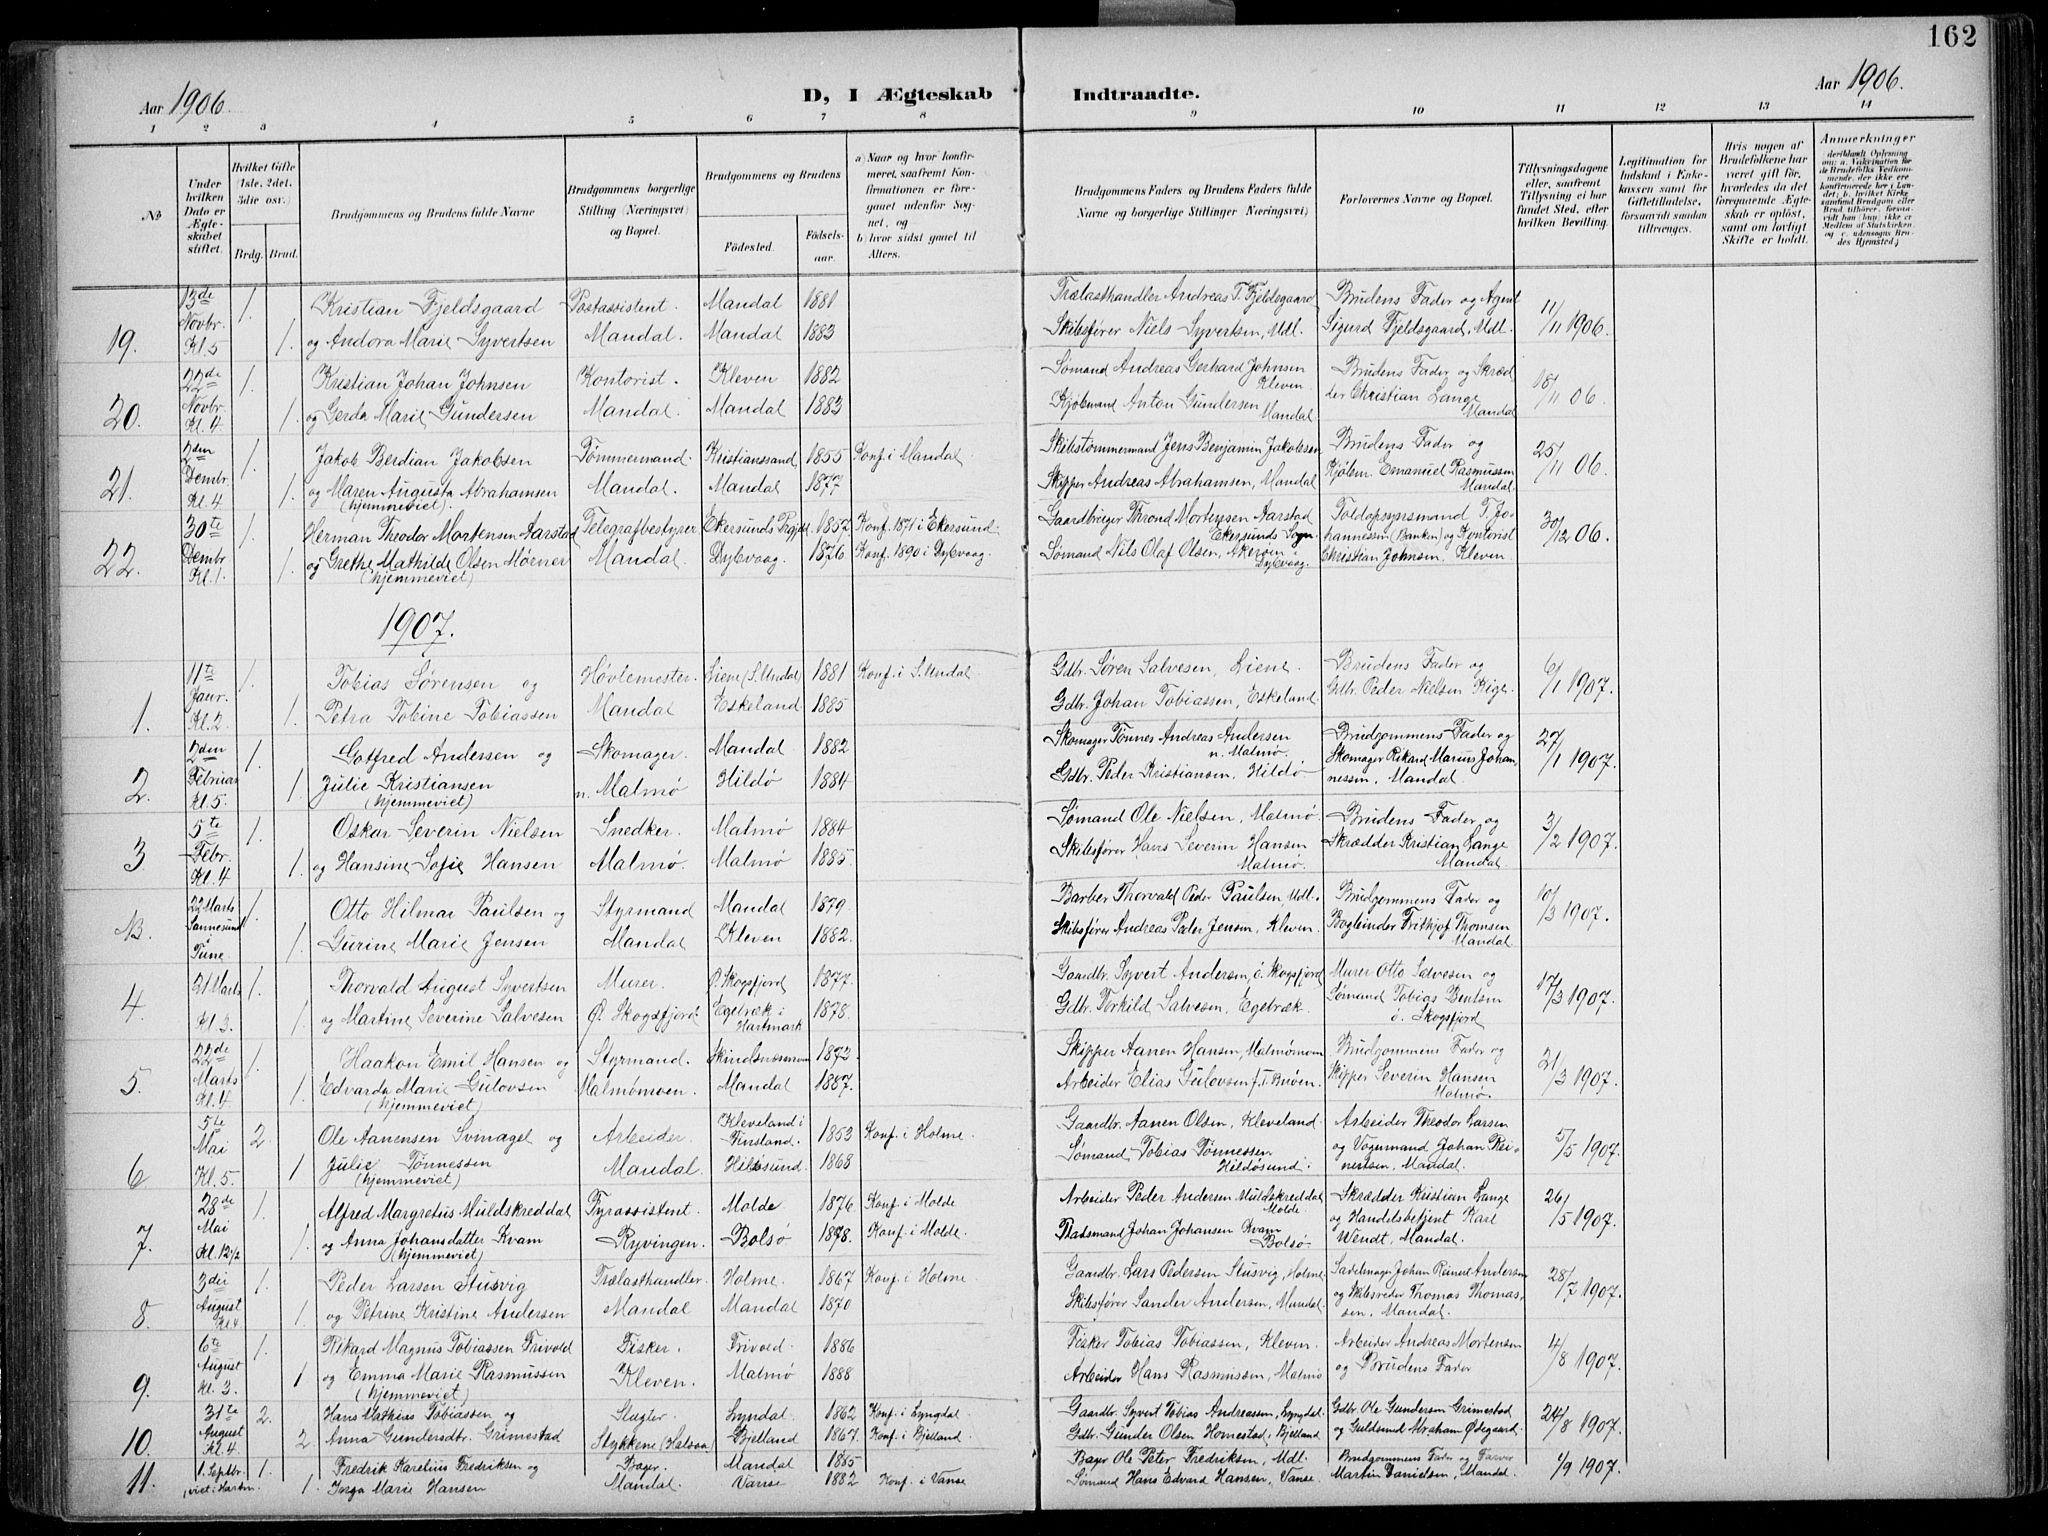 162
Aar 1906.
D, I Ægteskab Indtraadte.
Aar 1906.
1 2 3 4 5 6 7 8 9 10 11 12 13 14
№
Under hvilken Dato er Ægteskabet stiftet.
Hvilket Gifte (1ste, 2det, 3die osv.)
Brdg. Brud.
Brudgommens og Brudens fulde Navne
Brudgommens borgerlige Stilling (Næringsvei) og Bopæl.
Brudgommens og Brudens
Födested.
Födselsaar.
a) Naar og hvor konfirmeret, saafremt Konfirmationen er foregaaet udenfor Sognet, og
b) hvor sidst gaaet til Alters.
Brudgommens Faders og Brudens Faders fulde Navne og borgerlige Stillinger (Næringsvei)
Forlovernes Navne og Bopæl.
Tillysningsdagene eller, saafremt Tillysning ei har fundet Sted, efter hvilken Bevilling.
Legitimation for Indskud i Enkekassen samt for Giftetilladelse, forsaavidt saadan tiltrænges.
Hvis nogen af Brudefolkene har været gift før, hvorledes da det foregaaende Ægteskab er oplöst, samt om lovligt Skifte er holdt.
Anmerkninger
19. 13de Novbr. Kl. 5 1. 1.
Kristian Fjeldsgaard Postassistent. Mandal 1881 Trælasthandler Andreas T. Fjeldsgaard Brudens Fader og Agent 11/11 1906.
og Andora Marie Syvertsen Mandal. Mandal 1883 Skibsfører Niels Syvertsen, Mdl. Sigurd Fjeldsgaard, Mdl.
20. 22de Novbr. Kl. 4 1. 1.
Kristian Johan Johnsen Kontorist. Kleven 1882 Sømand Andreas Gerhard Johnsen Kleven. Brudens Fader og Skræd 18/11 06.
og Gerda Marie Gundersen Mandal. Mandal 1883 Kjøbmand Anton Gundersen Mandal. der Christian Lange Mandal
21. 2den Dembr. Kl. 4 1. 1.
Jakob Berdian Jakobsen Tømmermand. Kristianssand 1855 Konf. i Mandal Skibstømmermand Jens Benjamin Jakobsen Brudens Fader og 25/11 06.
og Maren Augusta Abrahamsen Mandal. Mandal 1877 Skipper Andreas Abrahamsen, Mandal Kjøbm. Emanuel Rasmussen Mandal.
(hjemmeviet).
22. 30te Dembr. Kl. 1. 1. 1.
Herman Theodor Mortensen Aarstad Telegrafbestyrer Ekersunds 1857. Konf. 1871 i Ekersund. Gaardbruger Thrond Mortensen Aarstad Ekersunds Sogn. Toldopsynsmand T. Jo- 30/12 06.
og Grethe Mathilde Olsen Mørner Mandal. Dybvaag. 1876 Konf. 1890 i Dybvaag. Sømand Nils Olaf Olsen, i Dybvaag. hannessen (Banken) og Kontorist Christian Johnsen. Kleven.
(hjemmeviet)
1907.
1. 11te Janr. Kl. 2. 1. 1.
Tobias Sørensen og Høvlemester. Liene (S. Undal) 1881 Konf. i S. Undal. Gdbr. Søren Salvesen, Liene. Brudens Fader og 6/1 1907.
Petra Tobine Tobiassen Mandal Eskeland 1885 Gdbr. Johan Tobiassen, Eskeland Gdbr. Peder Nielsen Kige.
2. 2den Februar Kl. 5. 1. 1.
Gotfred Andersen og Skomager. Mandal 1882 Skomager Tønnes Andreas Andersen n. Malmø. Brudgommens Fader og 27/1 1907.
Julie Kristiansen n. Malmø Hildø 1884 Gdbr. Peder Kristiansen, Hildø Skomager Rikard Marius Johan nessen, Mandal.
(hjemmeviet)
3 5te Febr. Kl. 4 1. 1.
Oskar Severin Nielsen Snedker. Malmø 1884 Sømand Ole Nielsen, Malmø. Brudens Fader og 3/2 1907.
og Hansine Sofie Hansen Malmø. Malmø 1885. Skibsfører Hans Severin Hansen Malmø. Skrædder Kristian Lange Mandal
B. 22 Marts Sannesund i Tune 1. 1.
Otto Hilmar Paulsen og Styrmand Mandal 1879. Barber Thorvald Peder Paulsen, Mdl. Brudgommens Fader og 10/3 1907.
Gurine Marie Jensen Mandal Kleven 1882. Skibsfører Andreas Peder Jensen, Kleven. Bogbinder Frithjof Thomsen Mandal
4 31 Marts Kl. 3. 1. 1.
Thorvald August Syvertsen Murer. Ø. Skogsfjord 1877. Gaardbr. Syvert Andersen, ø. Skogsfjord Murer Otto Salvesen og 17/3 1907.
og Martine Severine Salvesen Ø. Skogsfjord Egebræk i Hartmark 1878. Gdbr. Torkild Salvesen, Egebræk. Sømand Tobias Bentsen ø. Skogsfjord
5 22de Marts Kl. 4 1. 1.
Haakon Emil Hansen og Styrmand. Skindsnæsmoen 1873. Skipper Aanen Hansen, Malmømoen Brudgommens Fader og 21/3 1907.
Edvarda Marie Gulovsen Malmømoen. Mandal 1887. Arbeider Elias Gulovsen Skipper Severin Hansen Malmø.
(hjemmeviet)
6 5te Mai Kl. 5. 2. 1
Ole Aanensen Svinagel og Arbeider. Kleveland i Finsland. 1853 Konf. i Holme. Gaardbr. Aanen Olsen, Kleveland. Arbeider Theodor Larsen 5/5 1907.
Julie Tønnessen Mandal. Hildøsund. 1868 Sømand Tobias Tønnessen Hildøsund. og Vognmand Johan Reinertsen, Mandal.
(hjemmeviet)
7. 28de Mai Kl. 12½ 1. 1.
Alfred Margretus Muldskreddal Fyrassistent. Molde 1876. Konf. i Molde Arbeider Peder Andersen Muldskreddal Molde. Skrædder Kristian Lange 26/5 1907.
og Anna Johansdatter Kvam Ryvingen. Bolsø. 1878. Konf. i Molde. Pladsmand Johan Johansen Kvam Bolsø. og Handelsbetjent Karl Wendt, Mandal.
(hjemmeviet)
8. 3die August Kl. 4. 1. 1.
Peder Larsen Stusvig Trælasthandler. Holme. 1867 Konf. i Holme Gaardbr. Lars Pedersen Stusvig, Holme Sadelmager Johan Reinert Andersen 28/7 1907.
og Petrine Kristine Andersen Mandal Mandal 1870 Skibsfører Sander Andersen, Mandal. og Skibsreder Thomas Thomassen, Mandal.
9. 6te August Kl. 3. 1. 1
Rikard Magnus Tobiassen Frivold Fisker. Frivold. 1886 Fisker Tobias Tobiassen, Kleven. Arbeider Andreas Mortensen 4/8 1907.
og Emma Marie Rasmussen Kleven. Malmø 1888 Arbeider Hans Rasmussen, Malmø og Brudens Fader
(hjemmeviet)
10. 31te August Kl. 4 2. 2.
Hans Mathias Tobiassen og Slagter. Lyndal 1862 Konf. i Lyngdal Gaardbr. Syvert Tobias Andreassen, Lyngdal. Gdbr. Ole Gundersen Grimestad 24/8 1907.
Anna Gundersdtr. Grimestad Stykkene (Halsaa) Bjelland 1867. Konf. i Bjelland. Gdbr. Gunder Olsen Homestad, Bjelland og Guldsmed Abraham Ødegaard.
11. 1. Septbr. viet i Hartm. 1. 1.
Fredrik Karelius Fredriksen og Bager. Mandal 1885 Bager Ole Peter Fredriksen, Mdl. Brudgommens Fader og Farver 1/9 1907.
Inga Marie Hansen Mandal. Vanse 1882 Konf. i Vanse Sømand Hans Edvard Hansen, Vanse. Martin Danielsen, Mandal.